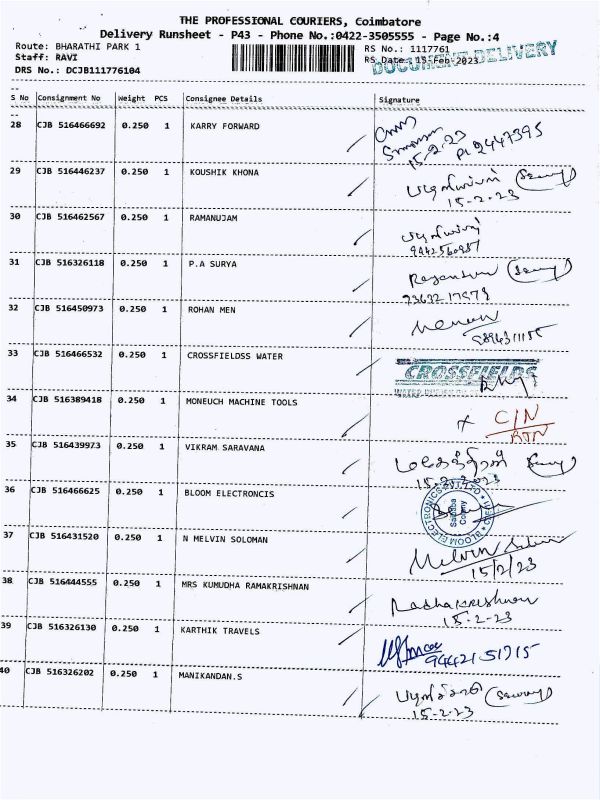 THE PROFESSIONAL COURIERS, Coimbatore
Delivery Runsheet - P43 - Phone No.:0422-3505555 - Page No.:4
Route: BHARATHI PARK 1 RS No.: 1117761
Staff: RAVI RS Date: 15-Feb-2023
DOCUMENT DELIVERY
DRS No.: DCJB111776104
S No Consignment No Weight PCS Consignee Details Signature
28 CJB 516466692 0.250 1 KARRY FORWARD
15-2-23
29 CJB 516446237 0.250 1 KOUSHIK KHONA
15-2-23
30 CJB 516462567 0.250 1 RAMANUJAM
31 CJB 516326118 0.250 1 P.A SURYA
32 CJB 516450973 0.250 1 ROHAN MEN
33 CJB 516466532 0.250 1 CROSSFIELDSS WATER
CROSSFIELDS
34 CJB 516389418 0.250 1 MONEUCH MACHINE TOOLS
C/N
RTN
35 CJB 516439973 0.250 1 VIKRAM SARAVANA
15-2-2023
36 CJB 516466625 0.250 1 BLOOM ELECTRONCIS
37 CJB 516431520 0.250 1 N MELVIN SOLOMAN
Melvin
15/2/23
38 CJB 516444555 0.250 1 MRS KUMUDHA RAMAKRISHNAN
Radhakrishnan
15-2-23
39 CJB 516326130 0.250 1 KARTHIK TRAVELS
94421 51715
40 CJB 516326202 0.250 1 MANIKANDAN.S
15-2-23